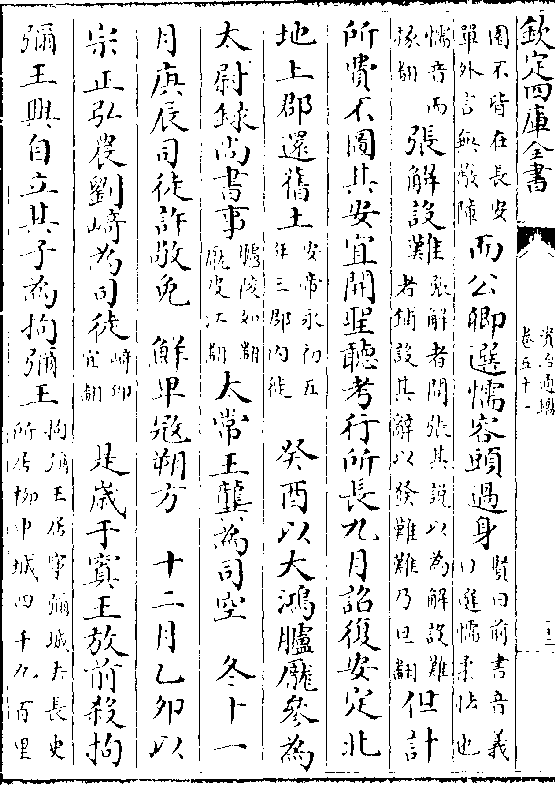 欽定四庫全書
資治通鑑
卷五十一
圖不皆在長安
單外言無蔽障
而公卿選懦容頭過身
賢曰前書音義
曰選懦柔怯也
懦音而
掾翻
張解設難
張解者開張其說以為解設難
者鋪設其辭以發難難乃旦翻
但計
所費不圖其安宜開聖聽考行所長九月詔復安定北
地上郡還舊土
安帝永初五
年三郡內徙
癸酉以大鴻臚龐參為
太尉録尚書事
臚陵如翻
龎皮江翻
太常王龔為司空 冬十一
月庚辰司徒許敬免 鮮卑寇朔方 十二月乙卯以
宗正弘農劉﨑為司徒
﨑邱
宜翻
是歲于窴王放前殺拘
彌王興自立其子為拘彌王
拘彌王居寧彌城去長史
所居柳中城四千九百里